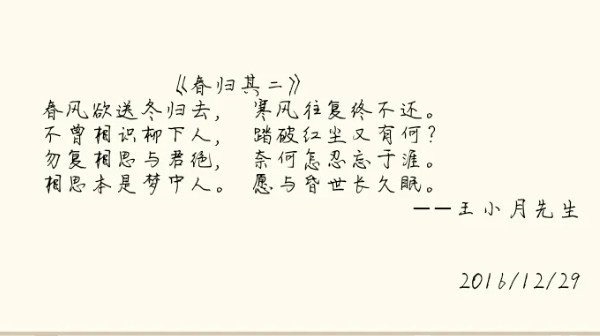 《春归其二》
春风欲送冬归去， 寒风往复终不还。
不曾相识柳下人， 踏破红尘又有何？
勿复相思与君绝， 奈何怎忍忘于涯。
相思本是梦中人。 愿与昏世长久眠。
——王小月先生
2016/12/29